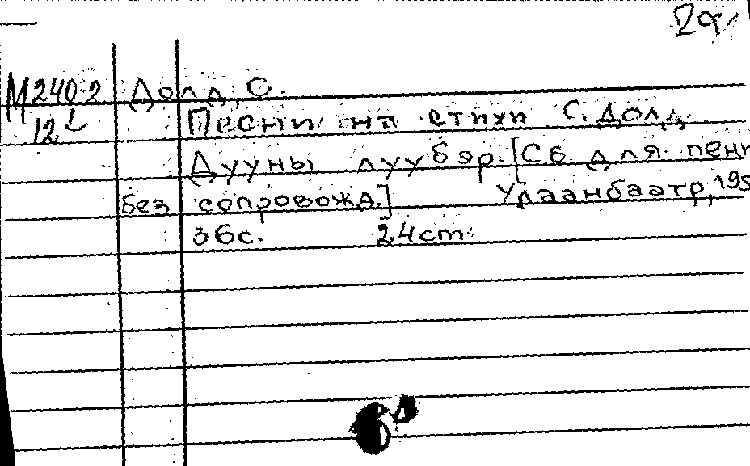 29
М240.2 Долд, С.
12 Песни на стихи С. Долд
Дууны луубэр. [Сб. для пени
без сопровожд.] Улаанбаатр, 195
36с. 24ст.